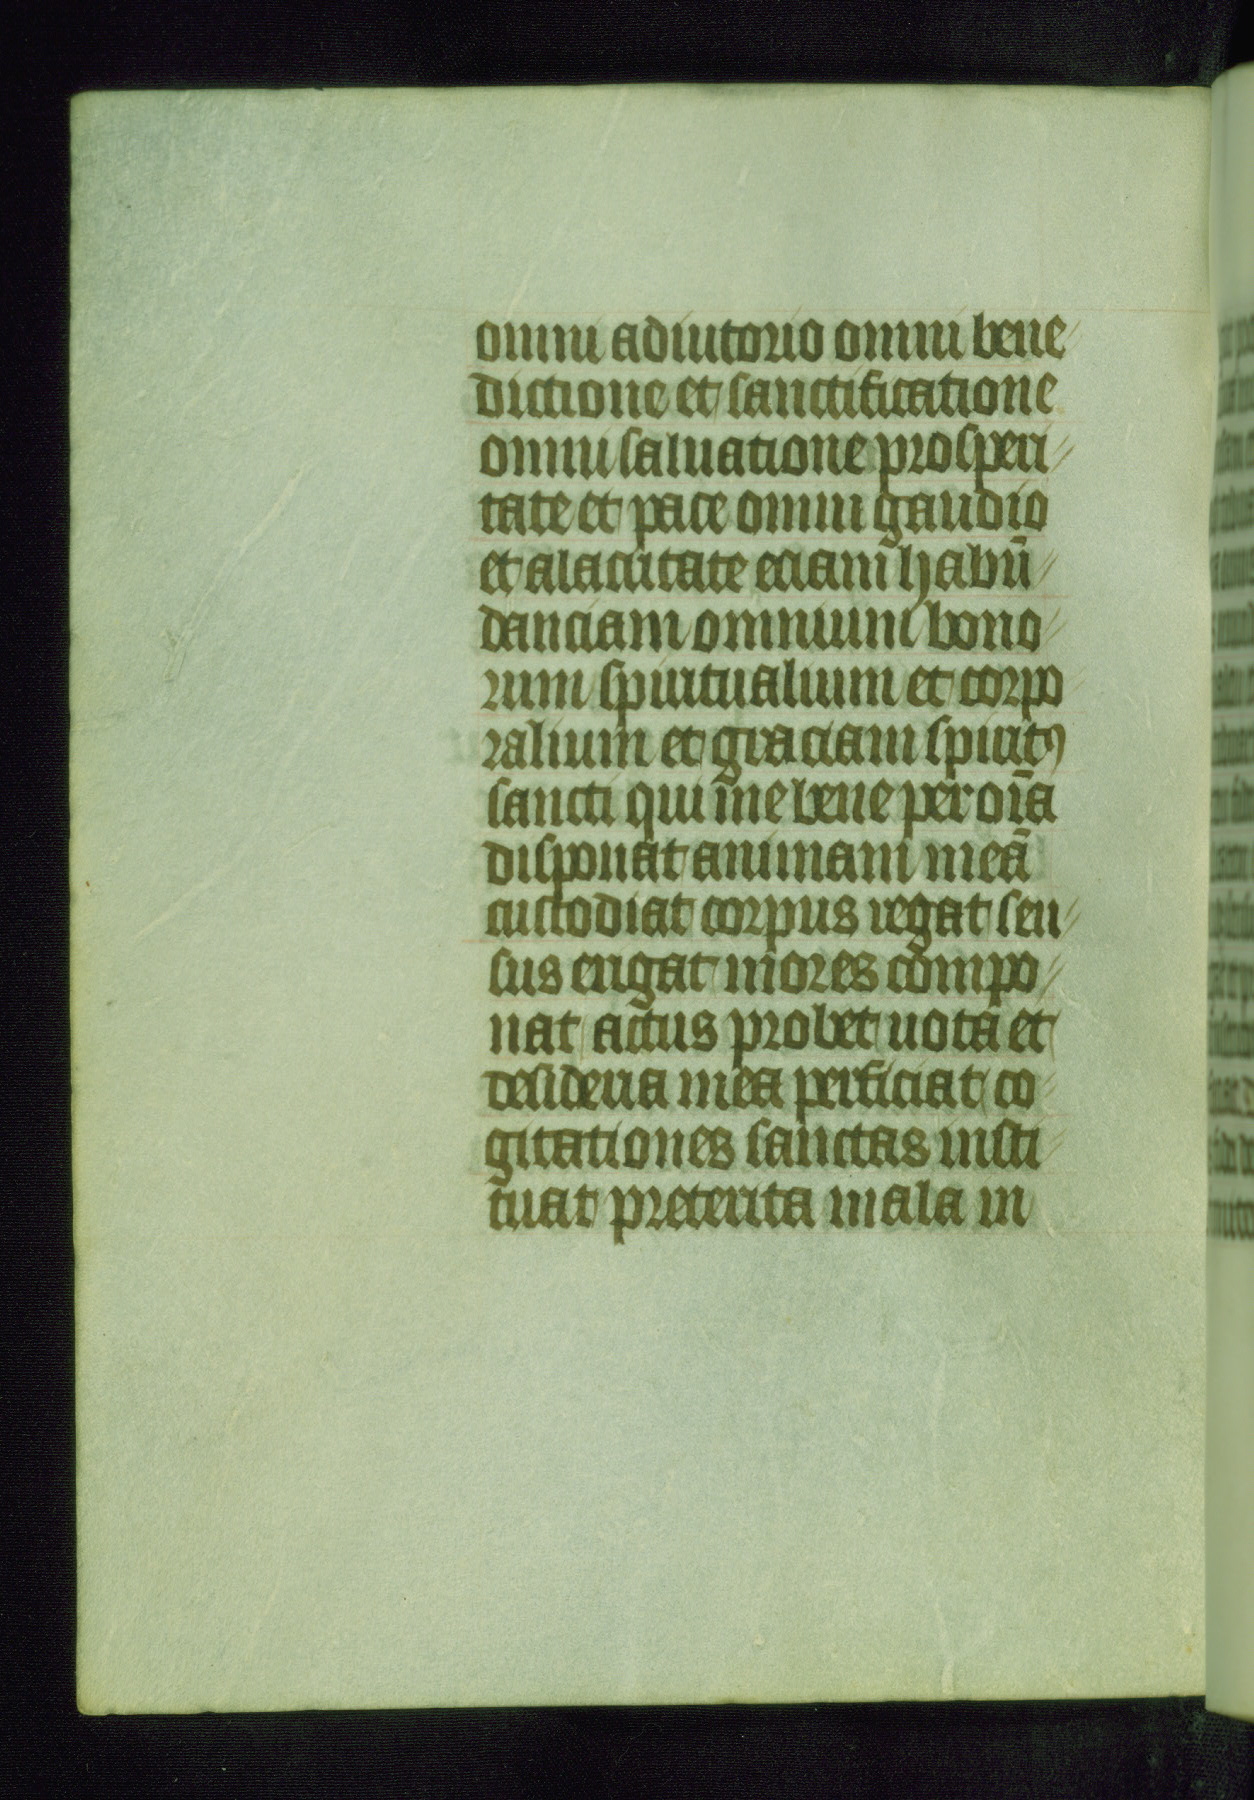 omni adiutorio omni bene
dictione et sanctificatione
omni saluatione prosperi
tate et pace omni gaudio
et alacritate eciam habū
danciam omnium bono
rum spiritualium et corpo
ralium et graciam spiritꝰ
sancti qui me bene per oīa
disponat animam meā
custodiat corpus regat sen
sus erigat mores compo
nat actus probet uota et
desideria mea perficiat co
gitationes sanctas insti
tuat preterita mala in